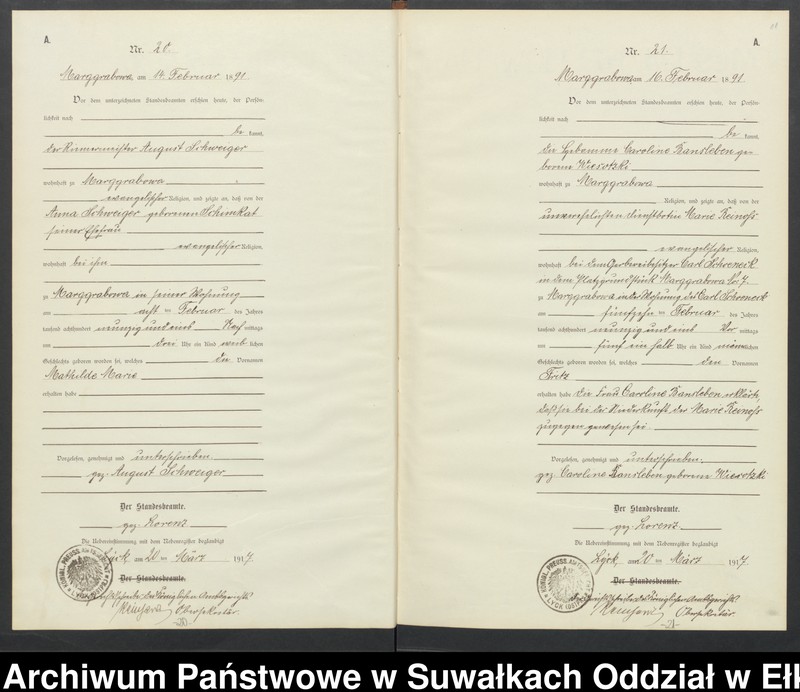 A.
Nr. 20.
Marggrabowa, am 14. Februar 1891.
Vor dem unterzeichneten Standesbeamten erschien heute, der Persön-
lichkeit nach
be kannt,
der Riemermeister August Schweiger
wohnhaft zu Marggrabowa
evangelischer Religion, und zeigte an, daß von der
Anna Schweiger geborenen Schimkat
seiner Ehefrau
evangelischer Religion,
wohnhaft bei ihm
zu Marggrabowa in seiner Wohnung
am acht ten Februar des Jahres
tausend achthundert neunzig und eins Nach mittags
um drei Uhr ein Kind weib lichen
Geschlechts geboren worden sei, welches die Vornamen
Mathilde Marie
erhalten habe
Vorgelesen, genehmigt und unterschrieben.
gez. August Schweiger
Der Standesbeamte.
gez. Lorenz
Die Uebereinstimmung mit dem Nebenregister beglaubigt
Lyck, am 20 ten März 1917.
Der Standesbeamte.
Gerichtsschreiber des Königlichen Amtsgerichts
Obersekretär.
-20-
A.
Nr. 21.
Marggrabowa, am 16. Februar 1891.
Vor dem unterzeichneten Standesbeamten erschien heute, der Persön-
lichkeit nach
be kannt,
die Hebamme Caroline Kansleben ge-
borene Wiesotzki
wohnhaft zu Marggrabowa
Religion, und zeigte an, daß von der
unverehelichten Dienstboten Marie Keinoss
evangelischer Religion,
wohnhaft bei dem Gerbereibesitzer Carl Schreneick
in dem Platzgrundstück Marggrabowa Nr. 7.
zu Marggrabowa in der Wohnung des Carl Schreneick
am fünfzehn ten Februar des Jahres
tausend achthundert neunzig und eins Vor mittags
um fünf ein halb Uhr ein Kind männ lichen
Geschlechts geboren worden sei, welches den Vornamen
Fritz
erhalten habe Die Frau Caroline Kansleben erklärt,
daß sie bei der Niederkunft der Marie Keinoss
zugegen gewesen sei
Vorgelesen, genehmigt und unterschrieben.
gez. Caroline Kansleben geborene Wiesotzki
Der Standesbeamte.
gez. Lorenz
Die Uebereinstimmung mit dem Nebenregister beglaubigt
Lyck, am 20 ten März 1917.
Der Standesbeamte.
Gerichtsschreiber des Königlichen Amtsgerichts
Obersekretär.
-21-
Archiwum Państwowe w Suwałkach Oddział w Ełk